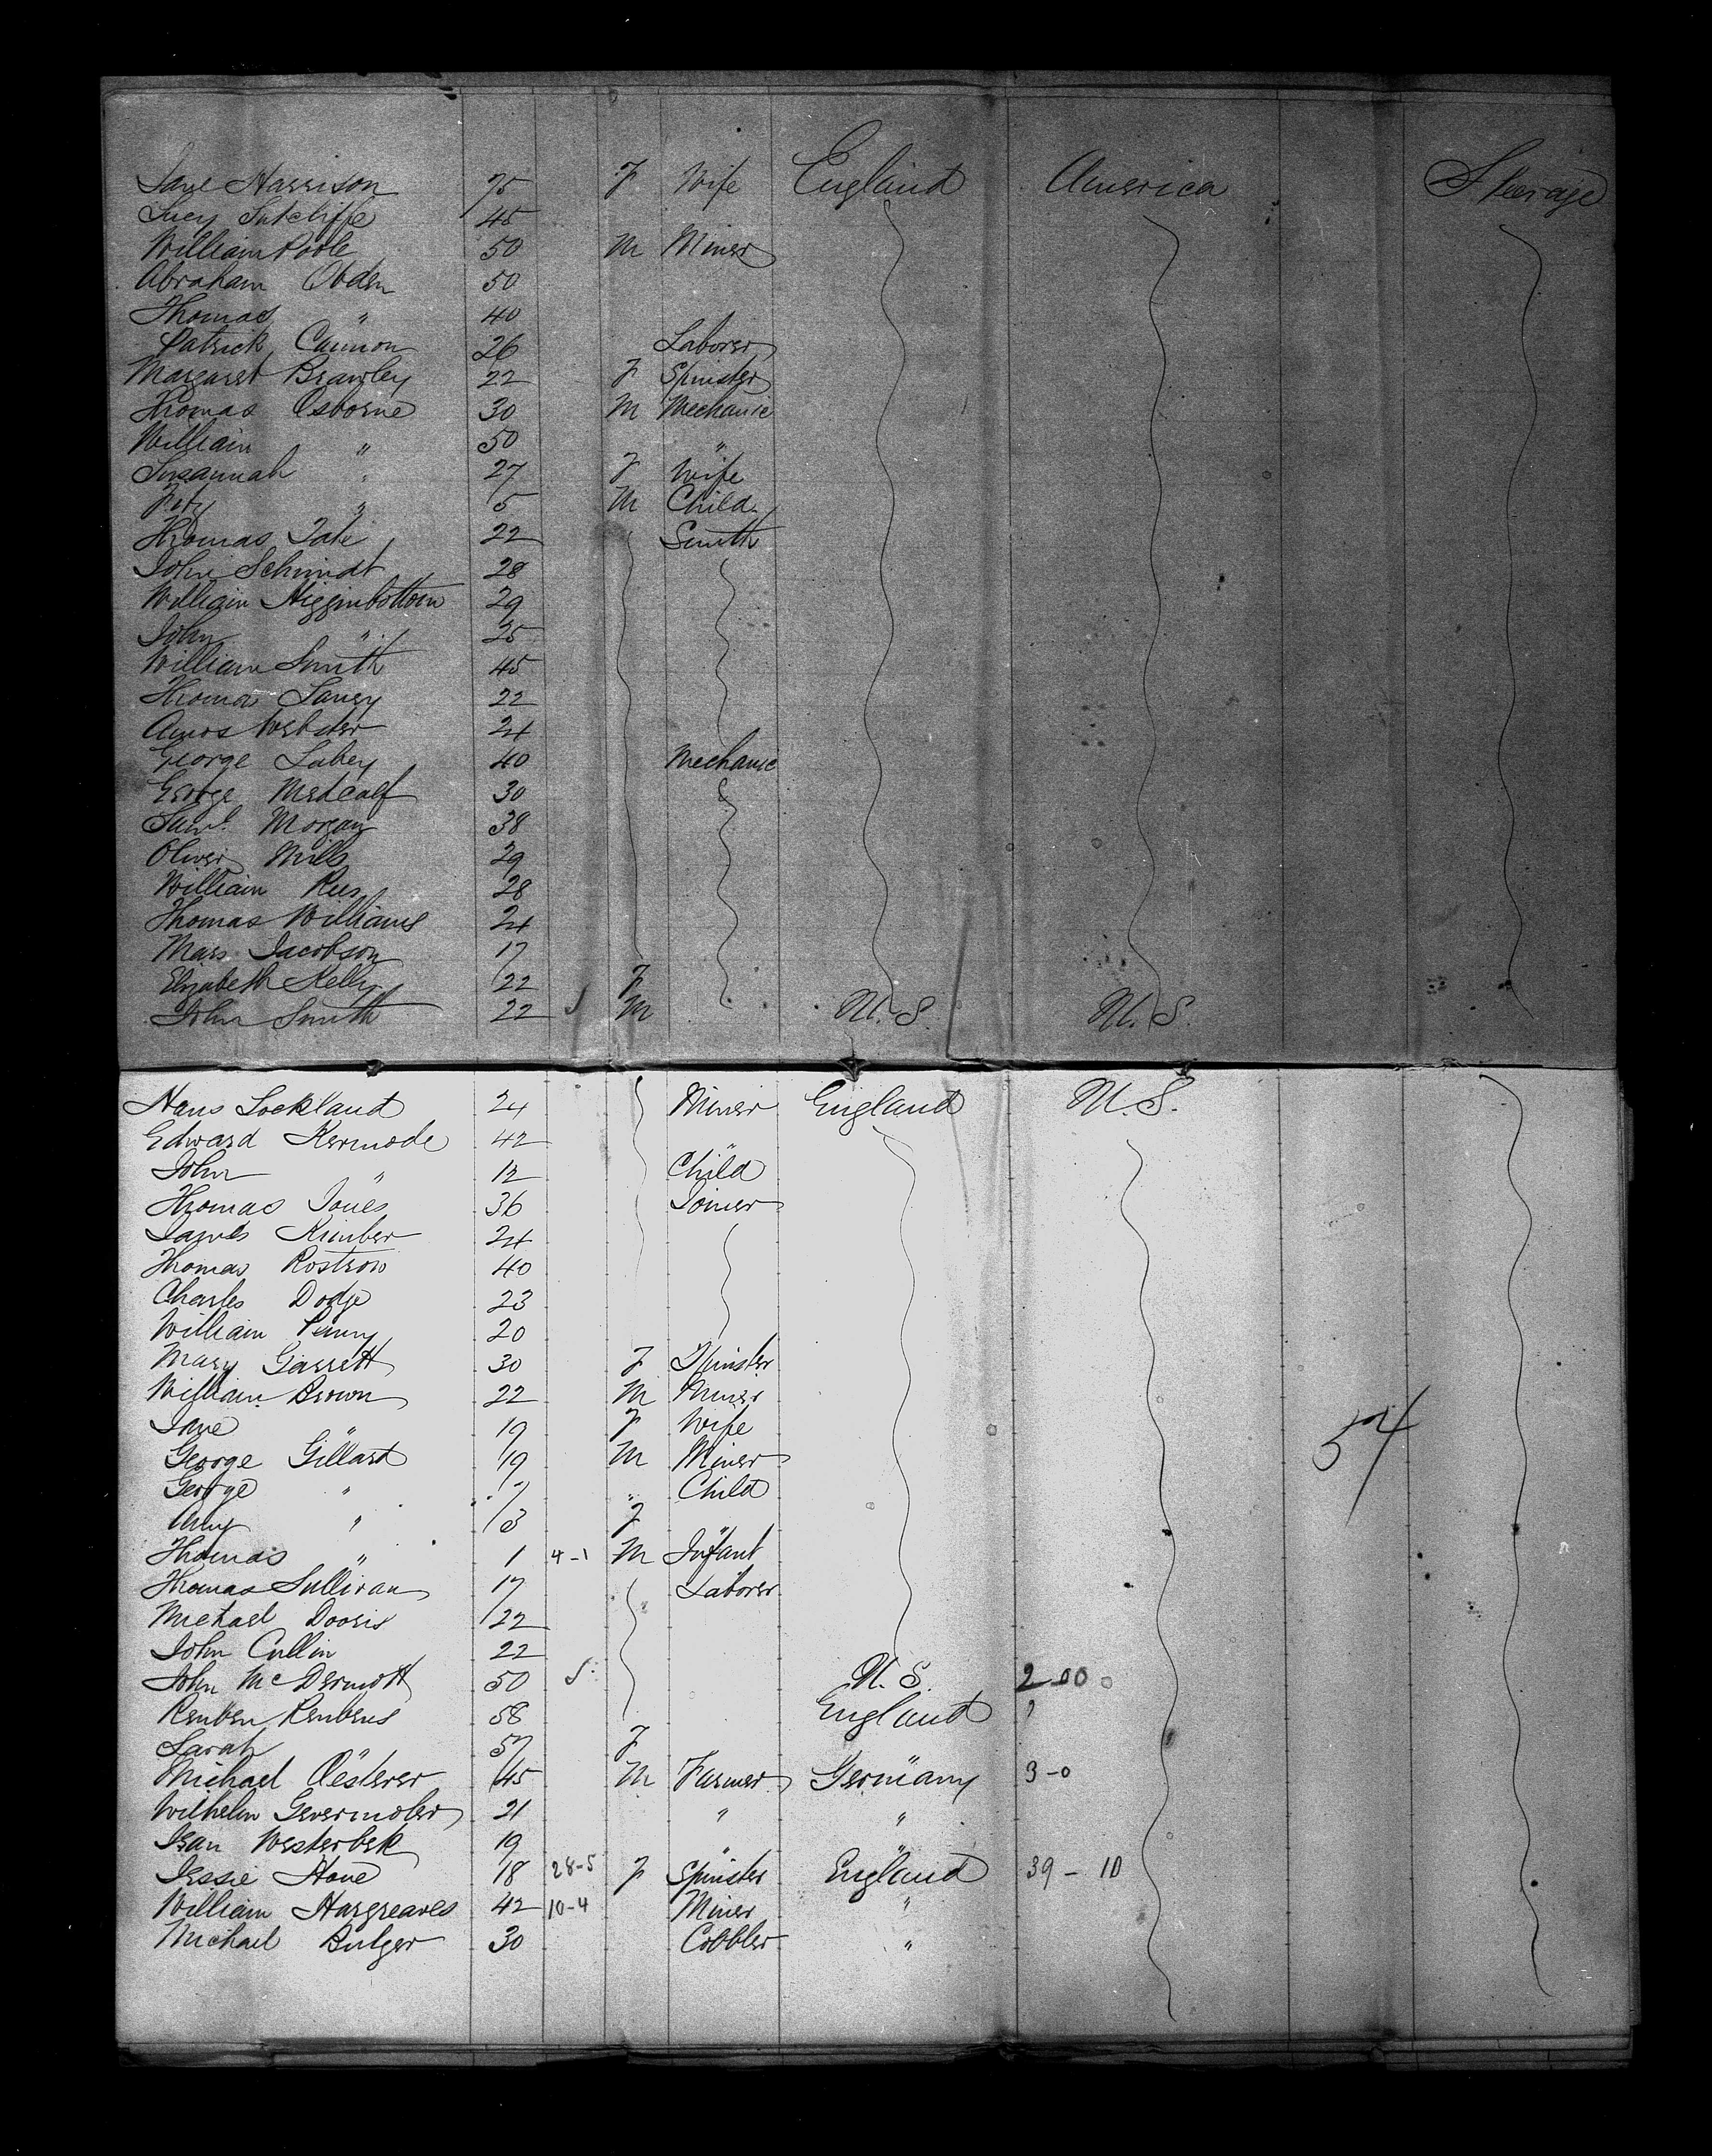 Jane Harrison 75 F Wife England America Steerage
Lucy Sutcliffe 45
William Poole 50 M Miner
Abraham Ogden 50
Thomas " 40
Patrick Cannon 26 Laborer
Margaret Brawley 22 F Spinster
Thomas Osborne 30 M Mechanic
William " 50 "
Susannah " 27 F Wife
" 5 M Child
Thomas Tate 22 Smith
John Schmidt 28
William Higginbottom 29
John " 25
William Smith 45
Thomas 22
Amos Webster 24
George 40 Mechanic
George Medcalf 30
Saml. Morgan 38
Oliver Mills 29
William Rees 28
Thomas Williams 24
Mars Jacobson 17
Elizabeth Kelly 22 F
John Smith 22 S M U.S. U.S.
Hans Lockland 24 Miner England U.S.
Edward Kermode 42 "
John " 12 Child
Thomas Jones 36 Joiner
James Kimber 24
Thomas Rostrow 40
Charles Dodge 23
William Penny 20
Mary Garrett 30 F Spinster
William Brown 22 M Miner
Jane " 19 F Wife
George Gillard 19 M Miner 54
George " 7 " Child
Amy " 3 F "
Thomas " 1 4-1 M Infant
Thomas Sullivan 17 Laborer
Michael Dooris 22
John Cullin 22
John McDermott 50 S U.S. 2-00
Reuben Reubens 58 England
Sarah " 57 F "
Michael Oesterer 45 M Farmer Germany 3-0
Wilhelm Gevermoler 21 " "
Jean Westerbek 19 " "
Jessie Hone 18 28-5 F Spinster England 39-10
William Hargreaves 42 10-4 Miner "
Michael Bulger 30 Cobbler "